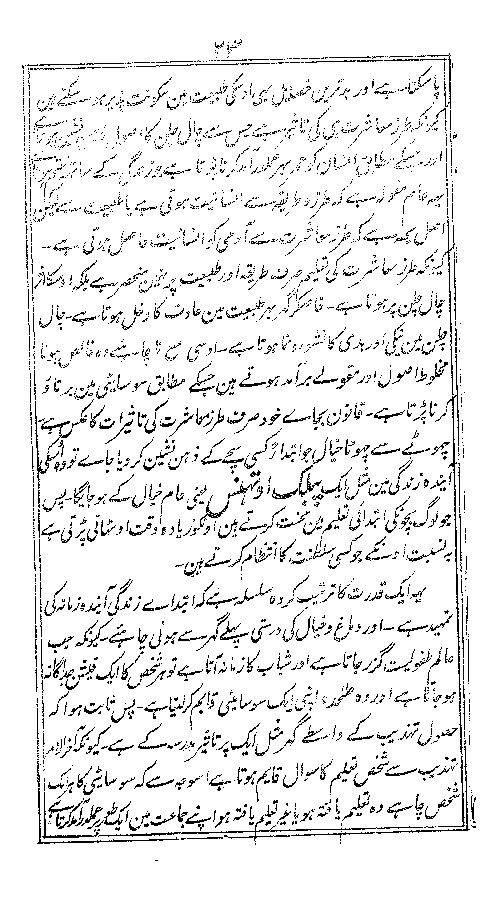 ۲۳
پاسکتا ہے اور بدترین خصایل بھی اوسکی طبیعت مین سکونت پذیر ہوسکتے ہین
کیونکہ طرز معاشرت ہی کی تاثیر ہے جس سے چال چلن کا اصول
اور جسکے مطابق انسان کو عملدرآمد کرنا پڑتا ہے جو زندگی کے ساتھ
یہ عام مقولہ ہے کہ طرز و طریقہ سے انسانیت ہوتی ہے یا طبیعت سے لیکن
اصل یہ ہے کہ طرز معاشرت سے آدمی کو انسانیت حاصل ہوتی ہے۔
کیونکہ طرز معاشرت کی تعلیم صرف طریقہ اور طبیعت پر نہین منحصر ہے بلکہ اوسکا اثر
چال چلن پر ہوتا ہے۔ خاصکر گھر پر طبیعت مین عادت کا دخل ہوتا ہے۔ چال
چلن مین نیکی اور بدی کا نشو و نما ہوتا ہے۔ اوسی سے چاہے وہ خالص ہو یا
مخلوط اصول اور مقولے برآمد ہوتے ہین جسکے مطابق سوسایٹی مین برتاؤ
کرنا پڑتا ہے۔ قانون بجاے خود صرف طرز معاشرت کی تاثیرات کا عکس ہے
چھوٹے سے چھوٹا خیال جو ابتداءً کسی بچے کے ذہن نشین کر دیا جاے تو وہ اوسکی
آیندہ زندگی مین مثل ایک پبلک یعنی عام خیال کے ہو جائیگا۔ پس
جو لوگ بچونکی ابتدائی تعلیم مین محنت کرتے ہین اونکو زیادہ دقت اوٹھانی پڑتی ہے
بہ نسبت اونکے جو کسی سلطنت کا انتظام کرتے ہین۔
یہ ایک قدرت کا ترتیب کردہ سلسلہ ہے کہ ابتداے زندگی آیندہ زمانہ کی
تمہید ہے۔ اور دماغ و خیال کی درستی پہلے گھر سے ہونی چاہئے۔ کیونکہ جب
عالم طفولیت گزر جاتا ہے اور شباب کا زمانہ آتا ہے تو ہر شخص کا ایک فیشن جداگانہ
ہو جاتا ہے اور وہ علٰحدہ اپنی ایک سوسایٹی قایم کر لیتا ہے۔ پس ثابت ہوا کہ
حصول تہذیب کے واسطے گھر مثل ایک پر تاثیر مدرسہ کے ہے۔ کیونکہ
تہذیب سے شخص تعلیم کا سوال قایم ہوتا ہے اسوجہ سے کہ سوسایٹی کا ہر ایک
شخص چاہے وہ تعلیم یافتہ ہو یا غیر تعلیم یافتہ ہو اپنے جماعت مین ایک طور پر عملدرآمد کرتا ہے